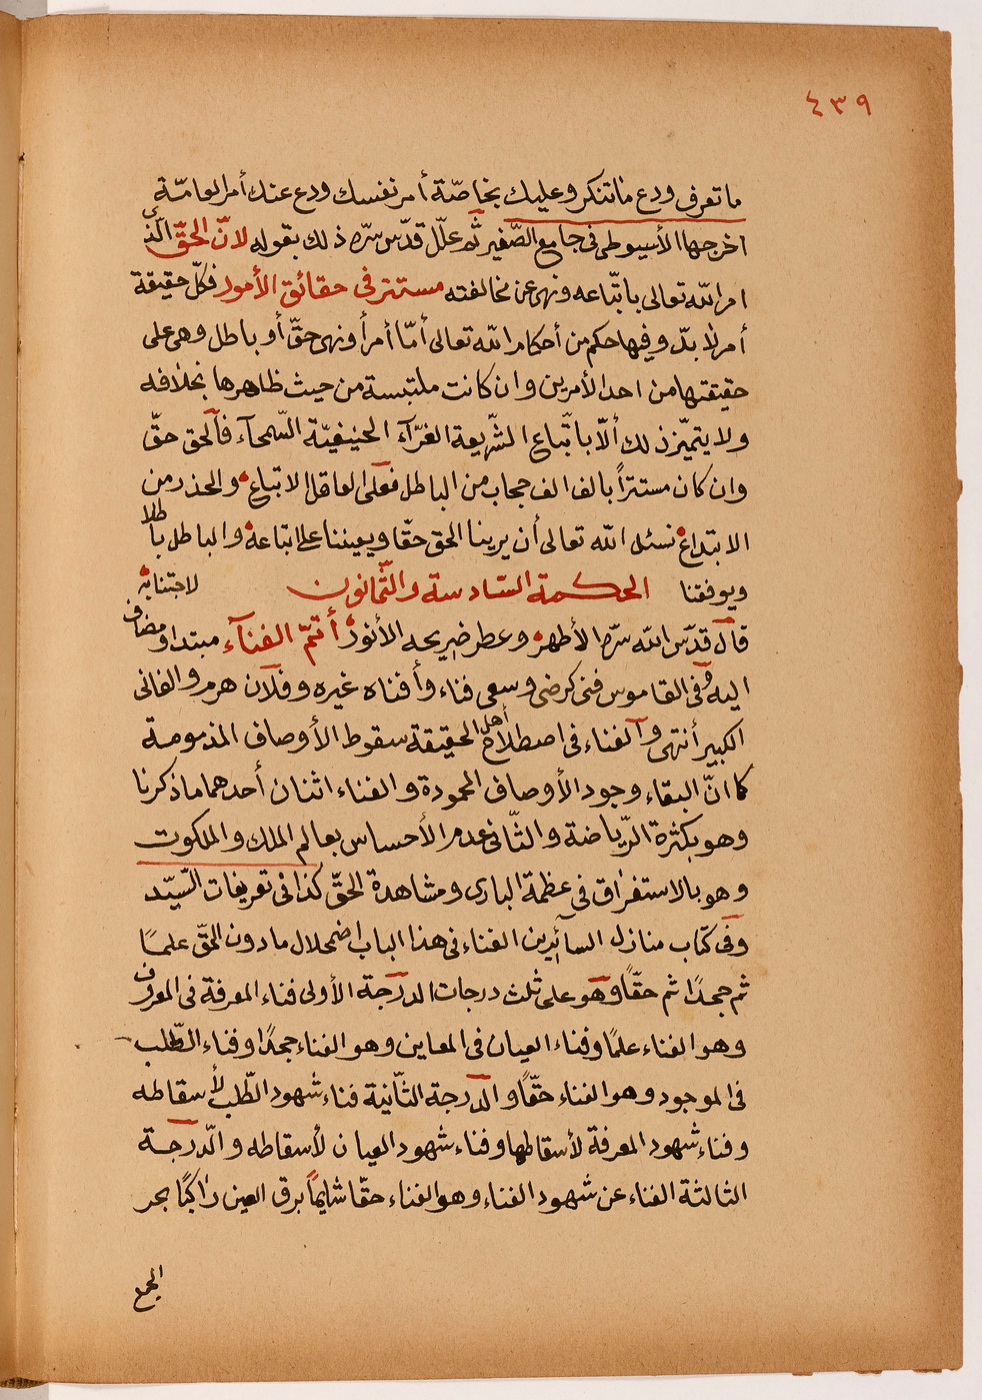 ٤٣٩
ما تعرف ودع ما تنكر وعليك بخاصّة أمر نفسك ودع عنك أمر العامّة
اخرجها الأسيوطى فى جامع الصّغير ثّم علّل قدّس سرّه ذلك بقوله لانّ الحقّ الّذى
امر الله تعالى باتّباعه ونهى عن مخالفته مستتر فى حقائق الأمور فكلّ حقيقة
أمر لا بدّ وفيها حكم من أحكام الله تعالى أمّا أمراً ونهى حقّ أو باطل وهى على
حقيقتها من احد الأمرين وان كانت ملتبسة من حيث ظاهرها بخلافه
ولا يتميّز ذلك ألّا باتّباع الشّريعة الغرّآء الحنيفيّة السّمحآء فآلحق حقّ
وان كان مستتراً بالف الف حجاب من الباطل فعلى العاقل الاتباع والحذر من
الابتداع نسئل الله تعالى أن يرينا الحق حقّا ويعيننا على اتباعه والباطل باطلا
ويوفقنا لاجتنابه
الحكمة السّادسة والثّمانون
قال قدّس الله سرّه الأطهر وعطر ضريحه الأنور أتمّ الفنآء مبتدا ومضاف
اليه وفى القاموس فنى كرضى وسعى فناء وأفناه غيره وفلان هرم والفانى
الكبير أنتهى وآلفناء فى اصطلاح أهل الحقيقة سقوط الأوصاف المذمومة
كما انّ البقاء وجود الأوصاف المحمودة والفناء اثنان أحدهما ما ذكرنا
وهو بكثرة الرّياضة والثّانى عدم الأحساس بعالم الملك والملكوت
وهو بالاستغراق فى عظمة البارى ومشاهدة الحقّ كذا فى تعريفات السّيّد
وفى كتاب منازل السآئرين الفناء فى هذا الباب اضمحلال ما دون الحقّ علمًا
ثم جحدًا ثم حقّاً وهو على ثلث درجات الدرجة الأولى فناء المعرفة فى المعروف
وهو الفناء علمًا وفناء العيان فى المعاين وهو الفناء جحدًا وفناء الطّلب
فى الموجود وهو الفناء حقّاً والدّرجة الثّانية فناء شهود الطّلب لأسقاطه
وفناء شهود المعرفة لأسقاطها وفناء شهود العيان لأسقاطه والدّرجة
الثالثة الفناء عن شهود الفناء وهو الفناء حقّا شايمًا برق العين راكبًا بحر
الجمع